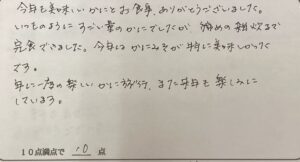 今年も美味しいかにとお食事、ありがとうございました。
いつものように すごい量のかにでしたが 〆の雑炊まで
完食できました。今年は かにみそが 特に美味しかった
です。
年に一度の楽しいかに旅行、また来年も楽しみに
しています。
10点満点で 10 点